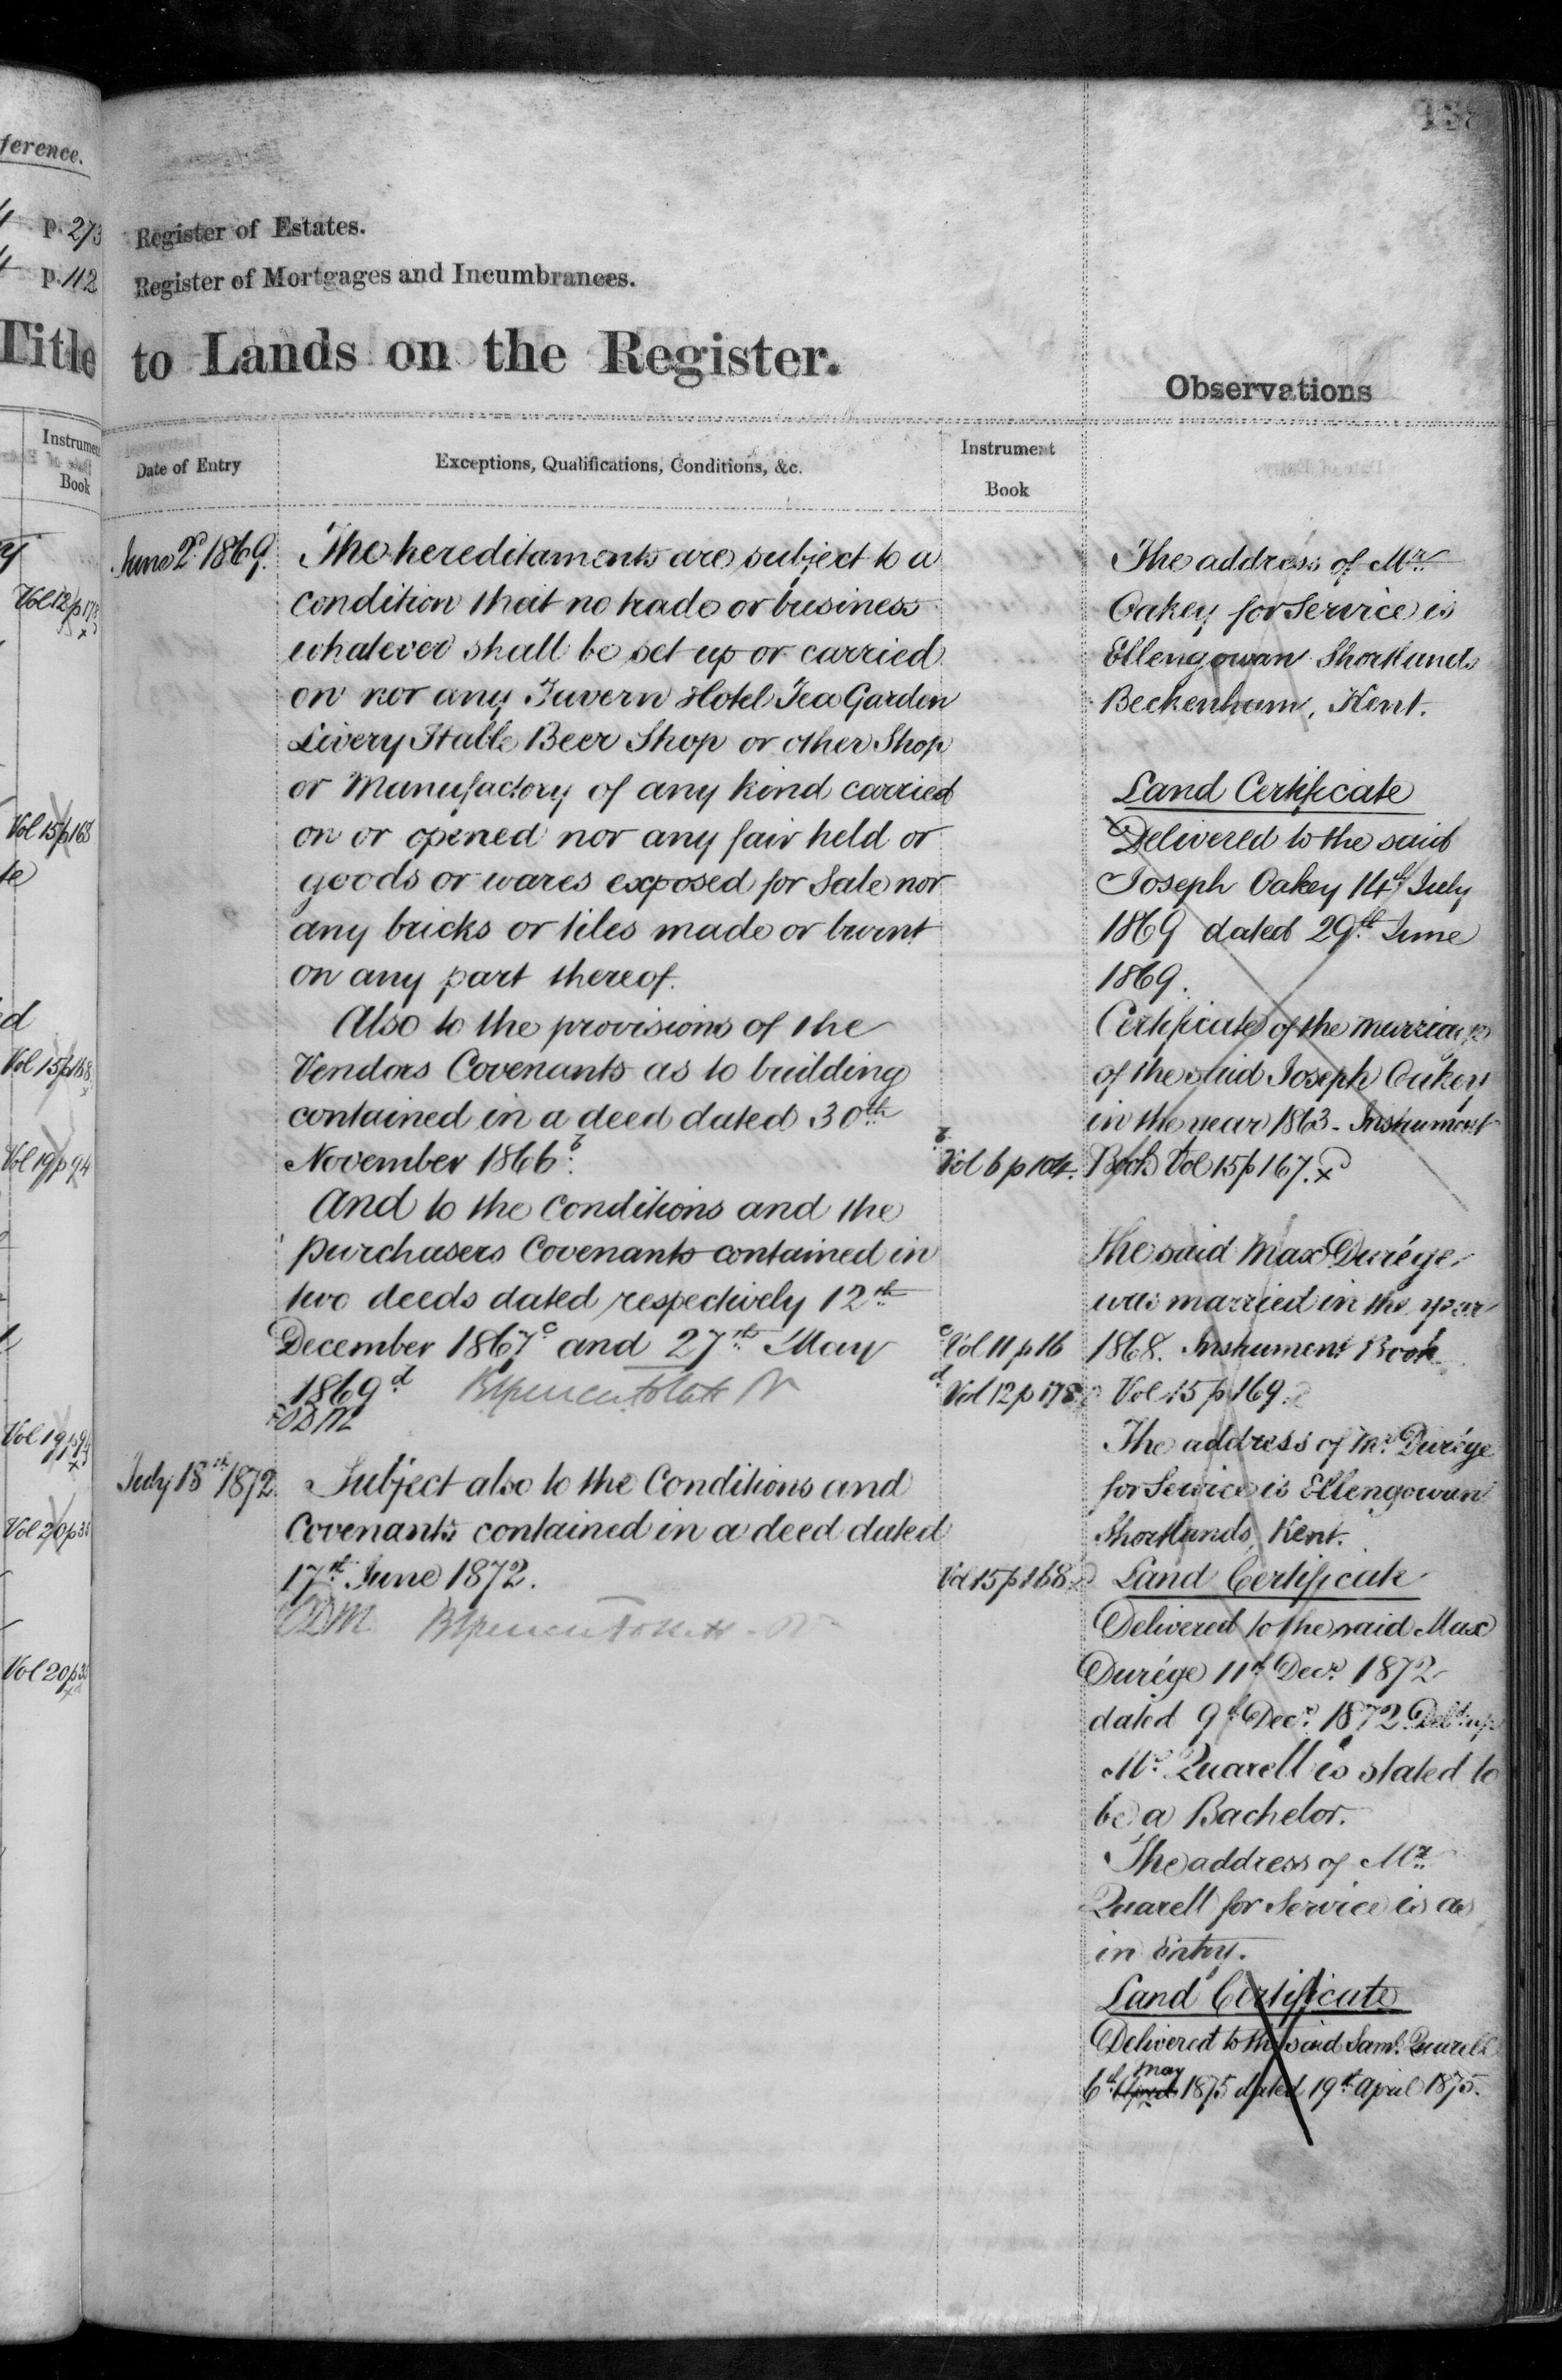 ference.
p. 273
p. 112
Title
Instrumen
Book
Vol 12 p 178
Vol 15 p 168
Vol 15 p 168
Vol 19 p 94
Vol 19 p 94
Vol 20 p 38
Vol 20 p 38
Register of Estates.
Register of Mortgages and Incumbrances.
to Lands on the Register.
Date of Entry
Exceptions, Qualifications, Conditions, &c.
Instrument
Book
June 2d 1869.
The hereditaments are subject to a
condition that no trade or business
whatever shall be set up or carried
on nor any Tavern Hotel Tea Garden
Livery Stable Beer Shop or other Shop
or Manufactory of any kind carried
on or opened nor any fair held or
goods or wares exposed for Sale nor
any bricks or tiles made or burnt
on any part thereof.
Also to the provisions of the
Vendors Covenants as to building
contained in a deed dated 30th
November 1866 b.
b Vol 6 p 104.
And to the Conditions and the
purchasers Covenants contained in
two deeds dated respectively 12th
December 1867 c and 27th May
c Vol 11 p 16
1869 d
d Vol 12 p 178
July 18th 1872.
Subject also to the Conditions and
Covenants contained in a deed dated
17th June 1872.
Vol 15 p 168
Observations
The address of Mr
Oakey for Service is
Ellengowan Shortlands
Beckenham, Kent.
Land Certificate
Delivered to the said
Joseph Oakey 14th July
1869 dated 29th June
1869.
Certificate of the marriage
of the said Joseph Oakey
in the year 1863 - Instrument
Book Vol 15 p 167.
The said Max Durége
was married in the year
1868. Instrument Book
Vol 15 p 169.
The address of Mr Durége
for Service is Ellengowan
Shortlands, Kent.
Land Certificate
Delivered to the said Max
Durége 11th Decr 1872
dated 9th Decr 1872.
Mr Quarell is stated to
be a Bachelor.
The address of Mr
Quarell for Service is as
in Entry.
Land Certificate
Delivered to the said Saml. Quarell
may
6th April 1875 dated 19th April 1875.